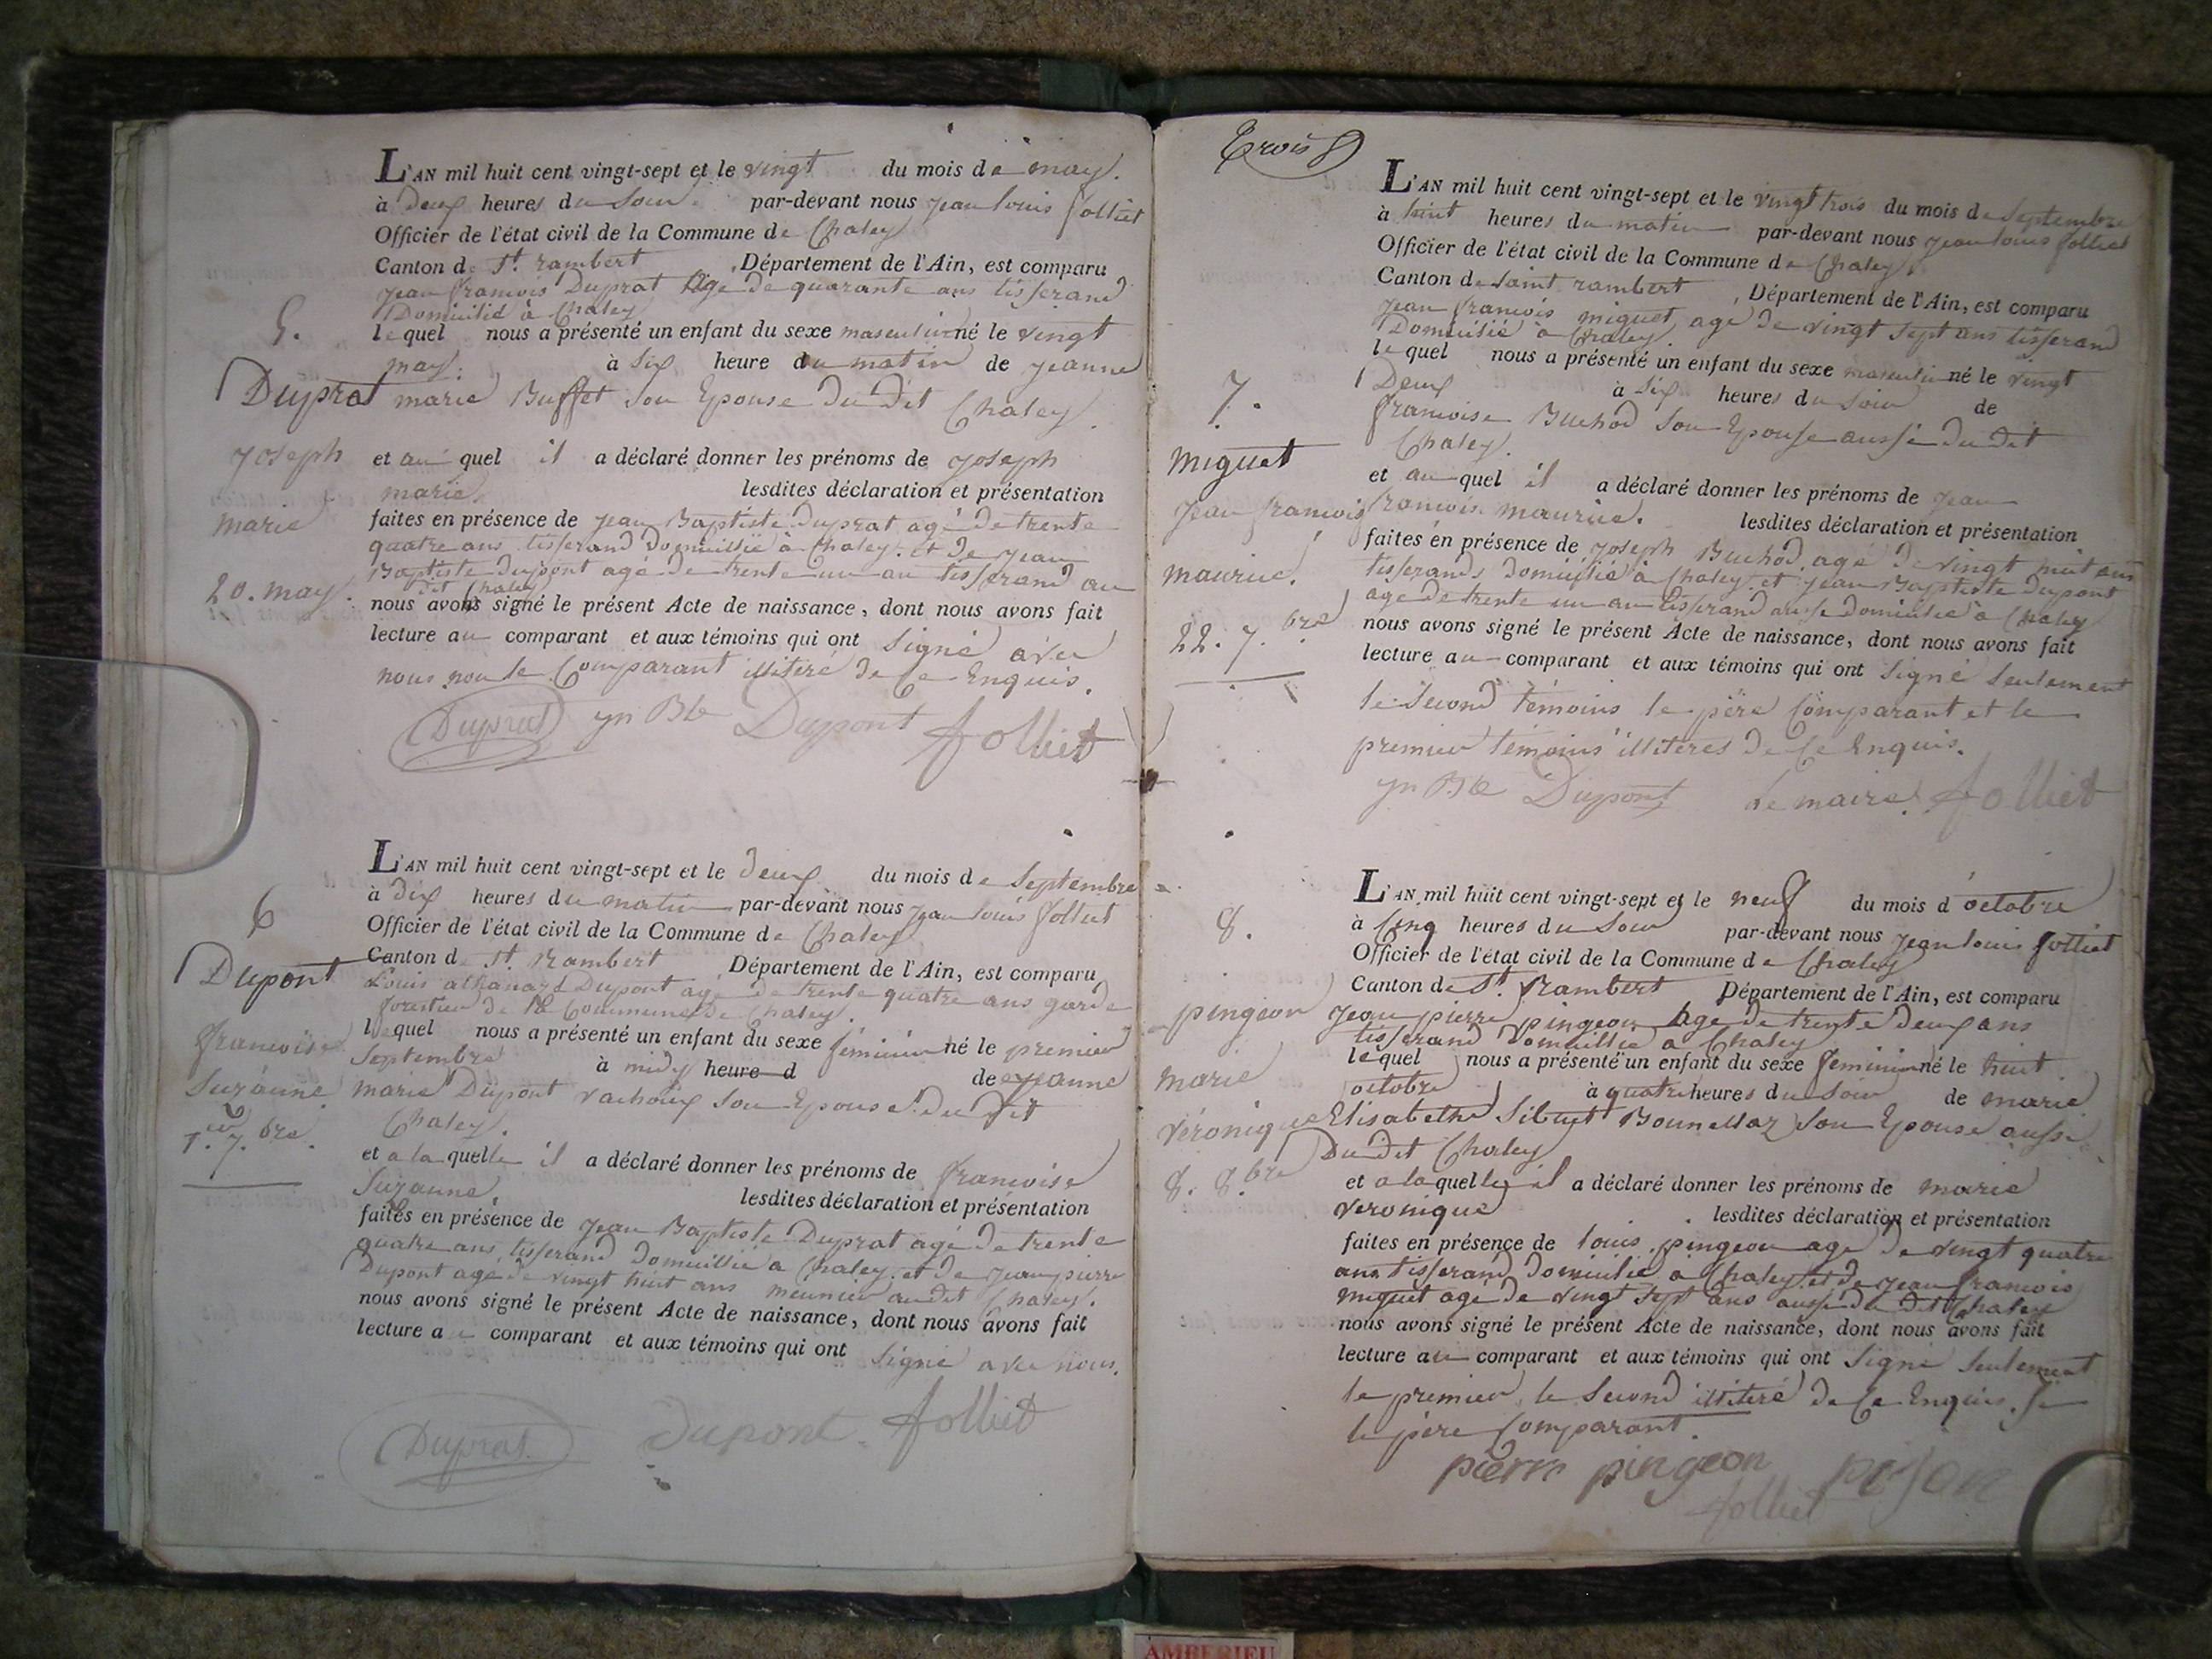 L'AN mil huit cent vingt-sept et le vingt du mois de may.
à Deux heures du Soir. par-devant nous jean louis folliet
Officier de l'état civil de la Commune de Chaley
Canton de St. rambert , Département de l'Ain, est comparu
jean francois Duprat Age de quarante ans tisserand
Domicilié à Chaley
5.
lequel nous a présenté un enfant du sexe masculin né le vingt
may. à Six heure du matin de jeanne
Duprat
marie Buffet Son Epouse du dit Chaley.
joseph
et au quel il a déclaré donner les prénoms de joseph
marie. lesdites déclaration et présentation
marie
faites en présence de jean Baptiste Duprat agé de trente
quatre ans tisserand domicilié à Chaley. et de jean
Baptiste dupont agé de trente un an tisserand au
20. may.
dit Chaley
nous avons signé le présent Acte de naissance, dont nous avons fait
lecture au comparant et aux témoins qui ont Signé avec
nous non le Comparant illitéré de Ce Enquis.
Duprat jn Bte Dupont folliet
L'AN mil huit cent vingt-sept et le deux du mois de Septembre
à dix heures du matin par-devant nous jean louis folliet
6
Officier de l'état civil de la Commune de Chaley
Canton de St. Rambert , Département de l'Ain, est comparu
Dupont
Louis Dupont agé de trente quatre ans garde
forestier de la Commune de Chaley.
francoise
lequel nous a présenté un enfant du sexe féminin né le premier
Septembre à midy heure d de jeanne
Suzanne
marie Dupont vachoux Son Epouse du dit
Chaley.
1.er 7.bre.
et a la quelle il a déclaré donner les prénoms de francoise
Suzanne. lesdites déclaration et présentation
faites en présence de jean Baptiste Duprat agé de trente
quatre ans, tisserand domicillié à Chaley. et de jean pierre
Dupont agé de vingt huit ans meunier au dit Chaley.
nous avons signé le présent Acte de naissance, dont nous avons fait
lecture au comparant et aux témoins qui ont Signé avec nous.
Duprat. Dupont folliet
Trois
L'AN mil huit cent vingt-sept et le vingt trois du mois de Septembre
à huit heures du matin par-devant nous jean louis folliet
Officier de l'état civil de la Commune de Chaley.
Canton de Saint rambert , Département de l'Ain, est comparu
jean francois miguet agé de vingt Sept ans tisserand
Domicilié à Chaley.
lequel nous a présenté un enfant du sexe masculin né le vingt
7.
Deux à Six heures du Soir de
francoise Buchod Son Epouse aussi du dit
Chaley.
miguet
et au quel il a déclaré donner les prénoms de jean
jean francois
francois maurice. lesdites déclaration et présentation
faites en présence de joseph Buchod, agé de vingt huit ans
maurice.
tisserands domicillié à Chaley. et jean Baptiste Dupont
agé de trente un an tisserand aussi domicilié à Chaley
22. 7.bre
nous avons signé le présent Acte de naissance, dont nous avons fait
lecture au comparant et aux témoins qui ont Signé Seulement
le Second témoins le père Comparant et le
premier témoins illitéres de Ce Enquis.
jn Bte Dupont Le maire. folliet
L'AN mil huit cent vingt-sept et le neuf du mois d'octobre
8.
à Cinq heures du Soir par-devant nous jean louis folliet
Officier de l'état civil de la Commune de Chaley
Canton de St. Rambert Département de l'Ain, est comparu
pingeon
jean pierre pingeon Age de trente deux ans
tisserand domicillié a Chaley
lequel nous a présenté un enfant du sexe feminin né le huit
marie
octobre à quatre heures du Soir de marie
véronique
Elisabeth Sibuet Bounellaz Son Epouse aussi
Du dit Chaley
8. 8.bre
et a la quelle il a déclaré donner les prénoms de marie
veronique lesdites déclaration et présentation
faites en présence de louis pingeon age de vingt quatre
ans tisserand domicilié à Chaley. et de jean francois
miguet agé de vingt Sept ans aussi du dit Chaley
nous avons signé le présent Acte de naissance, dont nous avons fait
lecture au comparant et aux témoins qui ont Signé Seulement
le premier, le Second illitéré de Ce Enquis.
le père Comparant.
pierre pingeon
folliet